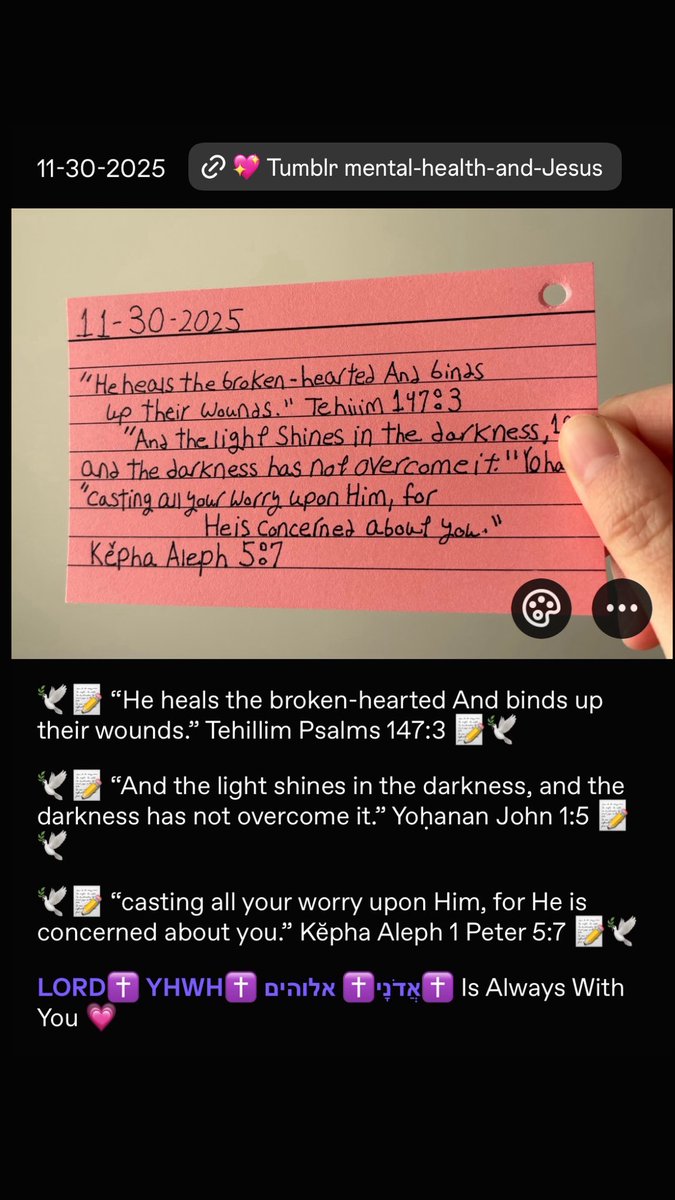 11-30-2025 💖 Tumblr mental-health-and-Jesus
11-30-2025
"He heals the broken-hearted And binds
up their wounds." Tehiiim 147:3
"And the light Shines in the darkness,
and the darkness has not overcome it." Yoha
"casting all your worry upon Him, for
He is concerned about you."
Kĕpha Aleph 5:7
🕊️📝 “He heals the broken-hearted And binds up
their wounds.” Tehillim Psalms 147:3 📝🕊️
🕊️📝 “And the light shines in the darkness, and the
darkness has not overcome it.” Yoḥanan John 1:5 📝
🕊️
🕊️📝 “casting all your worry upon Him, for He is
concerned about you.” Kĕpha Aleph 1 Peter 5:7 📝🕊️
LORD✝️ YHWH✝️ אלוהים ✝️אֲדֹנָי✝️ Is Always With
You 💗